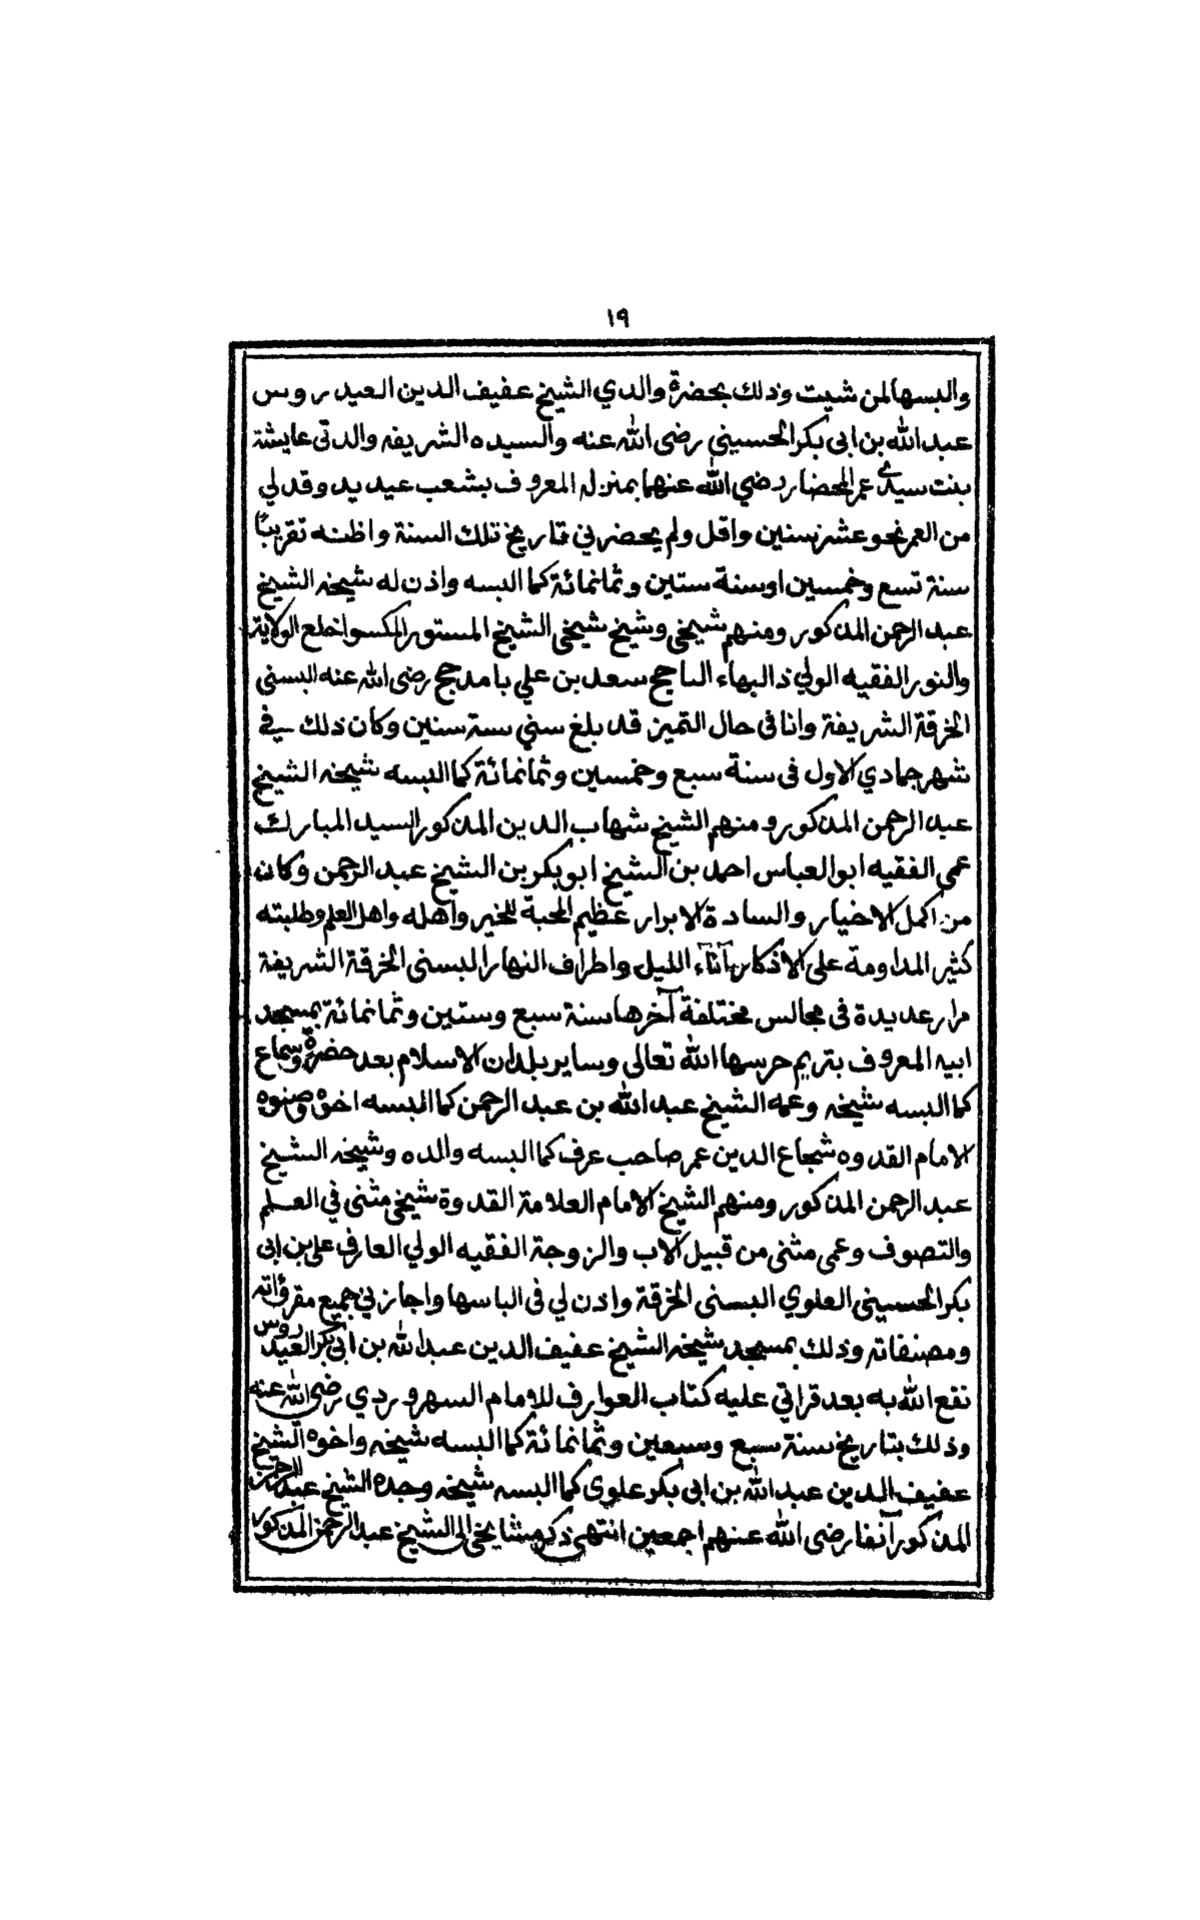 ١٩
والبسها لمن شيت وذلك بحضرة والدي الشيخ عفيف الدين العيدروس
عبدالله بن ابى بكر الحسيني رضى الله عنه والسيده الشريفه والدتى عايشة
بنت سيدى عمر المحضار رضي الله عنهما بمنزله المعروف بشعب عيديد وقد لي
من العمر نحو عشر سنين واقل ولم يحضرني تاريخ تلك السنة واظنه تقريبًا
سنة تسع وخمسين اوسنة ستين وثمانمائة كما البسه واذن له شيخه الشيخ
عبد الرحمن المذكور ومنهم شيخى وشيخ شيخى الشيخ المستور المكسو اخلع الولاية
والنور الفقيه الولي ذالبهاء التاج سعد بن علي بامدحج رضى الله عنه البسنى
الخرقة الشريفة وانا فى حال التميز قد بلغ سني ستة سنين وكان ذلك في
شهر جمادي الاول فى سنة سبع وخمسين وثمانمائة كما البسه شيخه الشيخ
عبد الرحمن المذكور ومنهم الشيخ شهاب الدين المذكور السيد المبارك
عمى الفقيه ابوالعباس احمد بن الشيخ ابوبكر بن الشيخ عبد الرحمن وكان
من اكمل الاخيار والسادة الابرار عظيم المحبة للخير واهله واهل العلم وطلبته
كثير المداومة على الاذكار بآنآء الليل واطراف النهار البسنى الخرقة الشريفة
مرار عديدة فى مجالس مختلفة آخرها سنة سبع وستين وثمانمائة بمسجد
ابيه المعروف بتريم حرسها الله تعالى وساير بلدان الاسلام بعد حضرة وسماع
كما البسه شيخه وعمه الشيخ عبدالله بن عبد الرحمن كما البسه اخوه وصنوه
الامام القدوه شجاع الدين عمر صاحب عرف كما البسه والده وشيخه الشيخ
عبد الرحمن المذكور ومنهم الشيخ الامام العلامة القدوة شيخى مثنى في العلم
والتصوف وعمى مثنى من قبيل الاب والزوجة الفقيه الولي العارف على بن ابى
بكر الحسينى العلوي البسنى الخرقة واذن لي فى الباسها واجازنى جميع مقرؤاته
ومصنفاته وذلك بمسجد شيخه الشيخ عفيف الدين عبدالله بن ابى بكر العيدروس
نفع الله به بعد قراتي عليه كتاب العوارف للامام السهروردي رضى الله عنه
وذلك بتاريخ سنة سبع وسبعين وثمانمائة كما البسه شيخه واخوه الشيخ
عفيف الدين عبدالله بن ابى بكر علوى كما البسه شيخه وجده الشيخ عبد الرحمن
المذكور آنفا رضى الله عنهم اجمعين انتهى ذكر مشايخى الى الشيخ عبد الرحمن المذكور